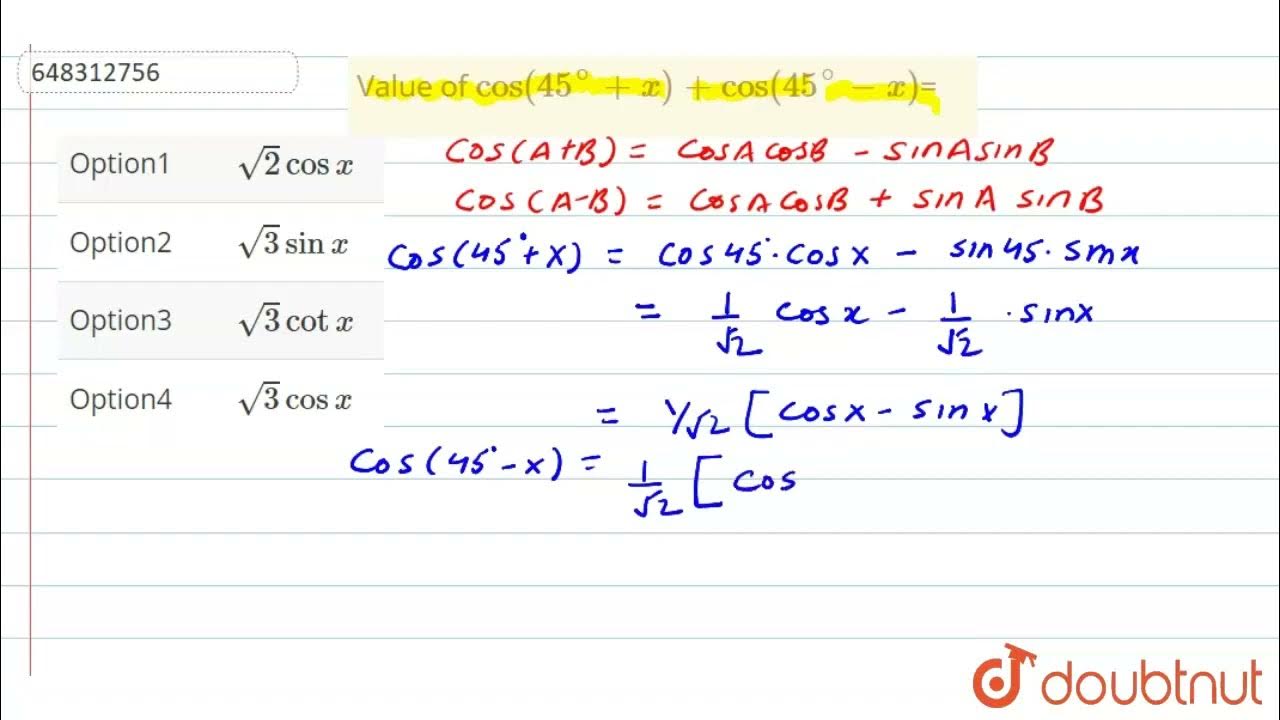 648312756
Value of cos(45° + x) + cos(45° − x)=
Option1 √2 cos x
Option2 √3 sin x
Option3 √3 cot x
Option4 √3 cos x
cos(A+B) = cosA cosB - sinA sinB
cos(A-B) = cosA cosB + sinA sinB
cos(45°+x) = cos45°·cosx - sin45·sinx
= 1/√2 cosx - 1/√2 ·sinx
= 1/√2 [cosx - sinx]
cos(45°-x) = 1/√2 [cos
doubtnut